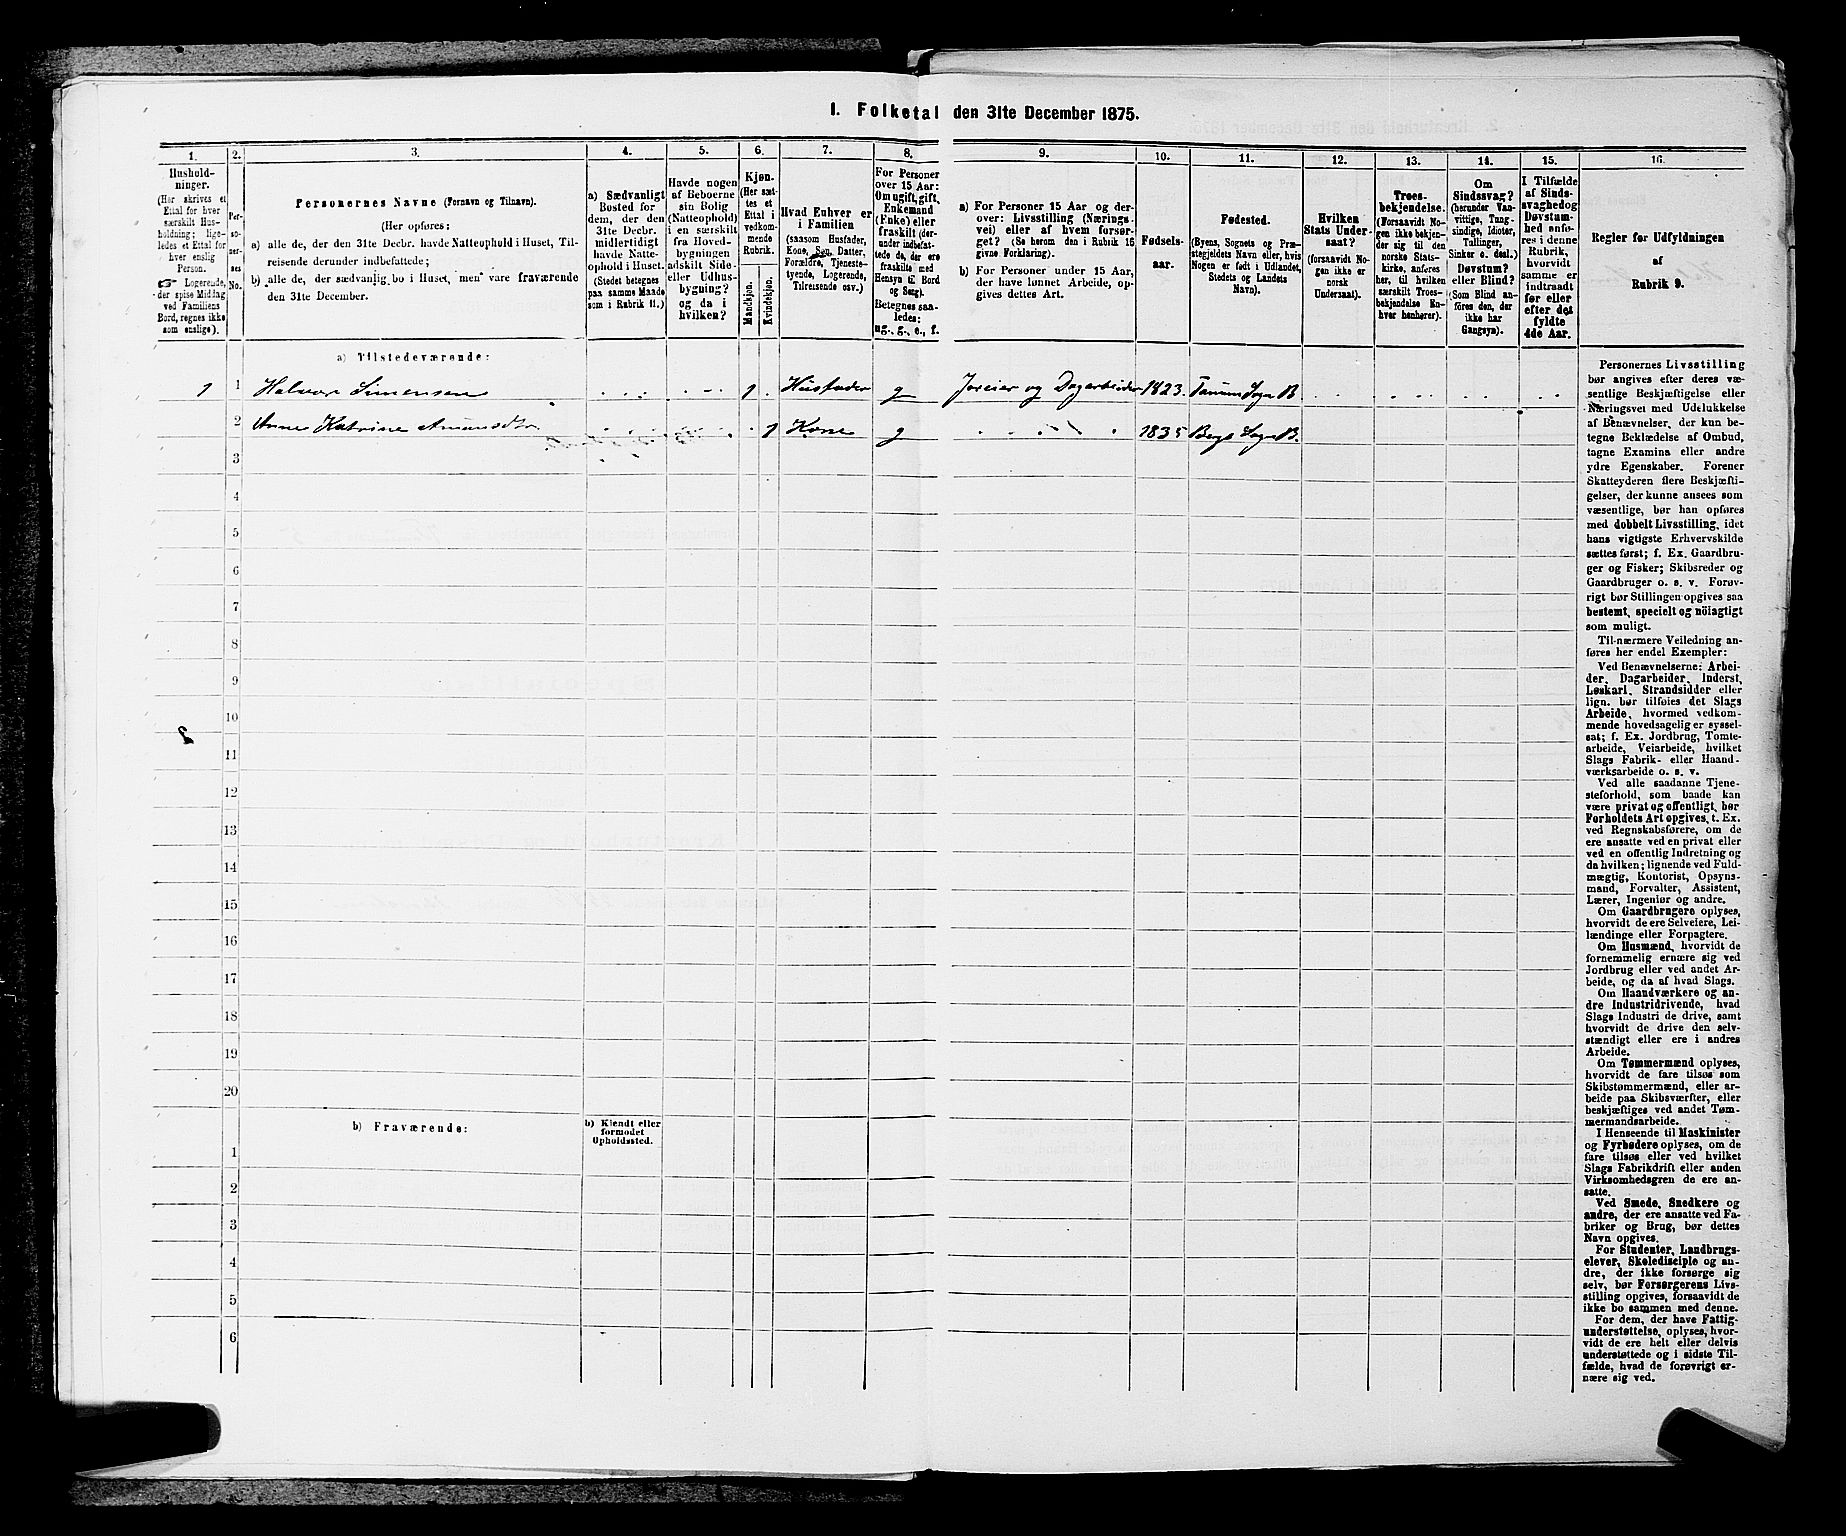 1. Folketal den 31te December 1875.
1.
2.
3.
4.
5.
6.
7.
8.
9.
10.
11.
12.
13.
14.
15.
16.
Hushold-
ninger.
(Her skrives et
Ettal for hver
særskilt Hus-
holdning; lige-
ledes et Ettal for
hver enslig
Person.
☞ Logerende,
der spise Middag
ved Familiens
Bord, regnes ikke
som enslige).
Per-
so-
ner-
nes
No.
Personernes Navne (Fornavn og Tilnavn).
(Her opføres:
a) alle de, der den 31te Decbr. havde Natteophold i Huset, Til-
reisende derunder indbefattede;
b) alle de, der sædvanlig bo i Huset, men vare fraværende
den 31te December.
a) Sædvanligt
Bosted for
dem, der den
31te Decbr.
midlertidigt
havde Natte-
ophold i Huset.
(Stedet betegnes
paa samme Maade
som i Rubrik 11.)
Havde nogen
af Beboerne
sin Bolig
(Natteophold)
i en særskilt
fra Hoved-
bygningen
adskilt Side-
eller Udhus-
bygning?
og da i
hvilken?
Kjøn.
(Her sæt-
tes et
Ettal i
vedkom-
mende
Rubrik.
Mandkjøn.
Kvindekjøn.
Hvad Enhver er
i Familien
(saasom Husfader,
Kone, Søn, Datter,
Forældre, Tjeneste-
tyende, Logerende,
Tilreisende osv.)
For Personer
over 15 Aar:
Om ugift, gift,
Enkemand
(Enke) eller
fraskilt (der-
under indbefat-
tede de, der ere
fraskilte med
Hensyn til Bord
og Seng).
Betegnes saa-
ledes:
ug., g., e., f.
a) For Personer 15 Aar og der-
over: Livsstilling (Nærings-
vei) eller af hvem forsør-
get? (Se herom den i Rubrik 16
givne Forklaring).
b) For Personer under 15 Aar,
der have lønnet Arbeide, op-
gives dettes Art.
Fødsels-
aar.
Fødested.
(Byens, Sognets og Præ-
stegjeldets Navn eller, hvis
Nogen er født i Udlandet,
Stedets og Landets
Navn).
Hvilken
Stats Under-
saat?
(forsaavidt No-
gen ikke er
norsk
Undersaat).
Troes-
bekjendelse.
(Forsaavidt No-
gen ikke bekjen-
der sig til den
norske Stats-
kirke, anføres
her, til hvilken
særskilt Troes-
bekjendelse En-
hver henhører).
Om
Sindssvag?
(herunder Van-
vittige, Tung-
sindige, Idioter,
Tullinger,
Sinker o. desl.)
Døvstum?
eller Blind?
(Som Blind an-
føres den, der
ikke har
Gangsyn).
I Tilfælde
af Sinds-
svaghed og
Døvstum-
hed anfø-
res i denne
Rubrik,
hvorvidt
samme er
indtraadt
før eller
efter det
fyldte
4de Aar.
Regler for Udfyldningen
af
Rubrik 9.
a) Tilstedeværende:
1 1 Halvor Simensen 1 Husfader g Joreier og Dagarbeider 1823. Tanum Sogn B
2 Anne Katrine Amundsdtr. 1 Kone g 1835 Bergs Sogn B.
3
4
5
6
7
8
9
10
11
12
13
14
15
16
17
18
19
20
b) Fraværende:
b) Kjendt eller
formodet
Opholdssted.
1
2
3
4
5
6
Personernes Livsstilling
bør angives efter deres væ-
sentlige Beskjæftigelse eller
Næringsvei med Udelukkelse
af Benævnelser, der kun be-
tegne Beklædelse af Ombud,
tagne Examina eller andre
ydre Egenskaber. Forener
Skatteyderen flere Beskjæfti-
gelser, der kunne ansees som
væsentlige, bør han opføres
med dobbelt Livsstilling, idet
hans vigtigste Erhvervskilde
sættes først; f. Ex. Gaardbru-
ger og Fisker; Skibsreder og
Gaardbruger o. s. v. Forøv-
rigt bør Stillingen opgives saa
bestemt, specielt og nöiagtigt
som muligt.
Til nærmere Veiledning an-
føres her endel Exempler:
Ved Benævnelserne: Arbei-
der, Dagarbeider, Inderst,
Løskarl, Strandsidder eller
lign. bør tilføies det Slags
Arbeide, hvormed vedkom-
mende hovedsagelig er syssel-
sat; f. Ex. Jordbrug, Tomte-
arbeide, Veiarbeide, hvilket
Slags Fabrik- eller Haand-
værksarbeide o. s. v.
Ved alle saadanne Tjene-
steforhold, som baade kan
være privat og offentligt, bør
Forholdets Art opgives, t. Ex.
ved Regnskabsførere, om de
ere ansatte ved en privat eller
ved en offentlig Indretning og
da hvilken; lignende ved Fuld-
mægtig, Kontorist, Opsyns-
mand, Forvalter, Assistent,
Lærer, Ingeniør og andre.
Om Gaardbrugere oplyses,
hvorvidt de ere Selveiere, Lei-
lændinge eller Forpagtere.
Om Husmænd, hvorvidt de
fornemmelig ernære sig ved
Jordbrug eller ved andet Ar-
beide, og da af hvad Slags.
Om Haandværkere og an-
dre Industridrivende, hvad
Slags Industri de drive, samt
hvorvidt de drive den selv-
stændigt eller ere i andres
Arbeide.
Om Tømmermænd oplyses,
hvorvidt de fare tilsøs som
Skibstømmermænd, eller ar-
beide paa Skibsværfter, eller
beskjæftiges ved andet Tøm-
mermandsarbeide.
I Henseende til Maskinister
og Fyrbødere oplyses, om de
fare tilsøs eller ved hvilket
Slags Fabrikdrift eller anden
Virksomhedsgren de ere an-
satte.
Ved Smede, Snedkere og
andre, der ere ansatte ved Fa-
briker og Brug, bør dettes
Navn opgives.
For Studenter, Landbrugs-
elever, Skoledisciple og an-
dre, der ikke forsørge sig
selv, bør Forsørgerens Livs-
stilling opgives, forsaavidt de
ikke bo sammen med denne.
For dem, der have Fattig-
understøttelse, oplyses, hvor-
vidt de ere helt eller delvis
understøttede og i sidste Til-
fælde, hvad de forøvrigt er-
nære sig ved.